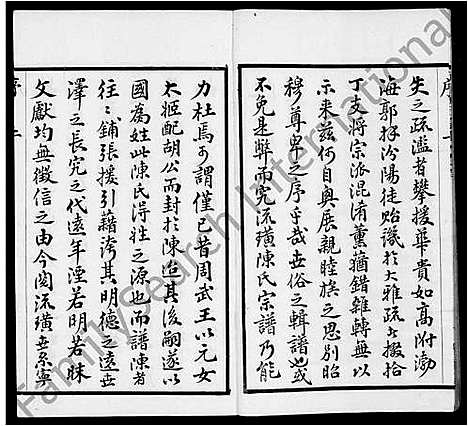 失之疏濫者攀援華貴如高附渤
海郭拜汾陽徒貽譏於大雅疏者掇拾
丁支將宗派混淆薰蕕錯雜轉無以
示来茲何自興展親睦族之思別昭
穆尊卑之序乎哉世俗之輯譜也或
不免是弊而究流璜陳氏宗譜乃能
力杜焉可謂僅已昔周武王以元女
太姬配胡公而封於陳迨其後嗣遂以
國為姓此陳氏得姓之源也而譜陳者
往々鋪張援引藉誇其明德之遠世
澤之長究之代遠年湮若明若昧
文獻均無徵信之由今閱流璜世系寧
序
二
FamilySearch International